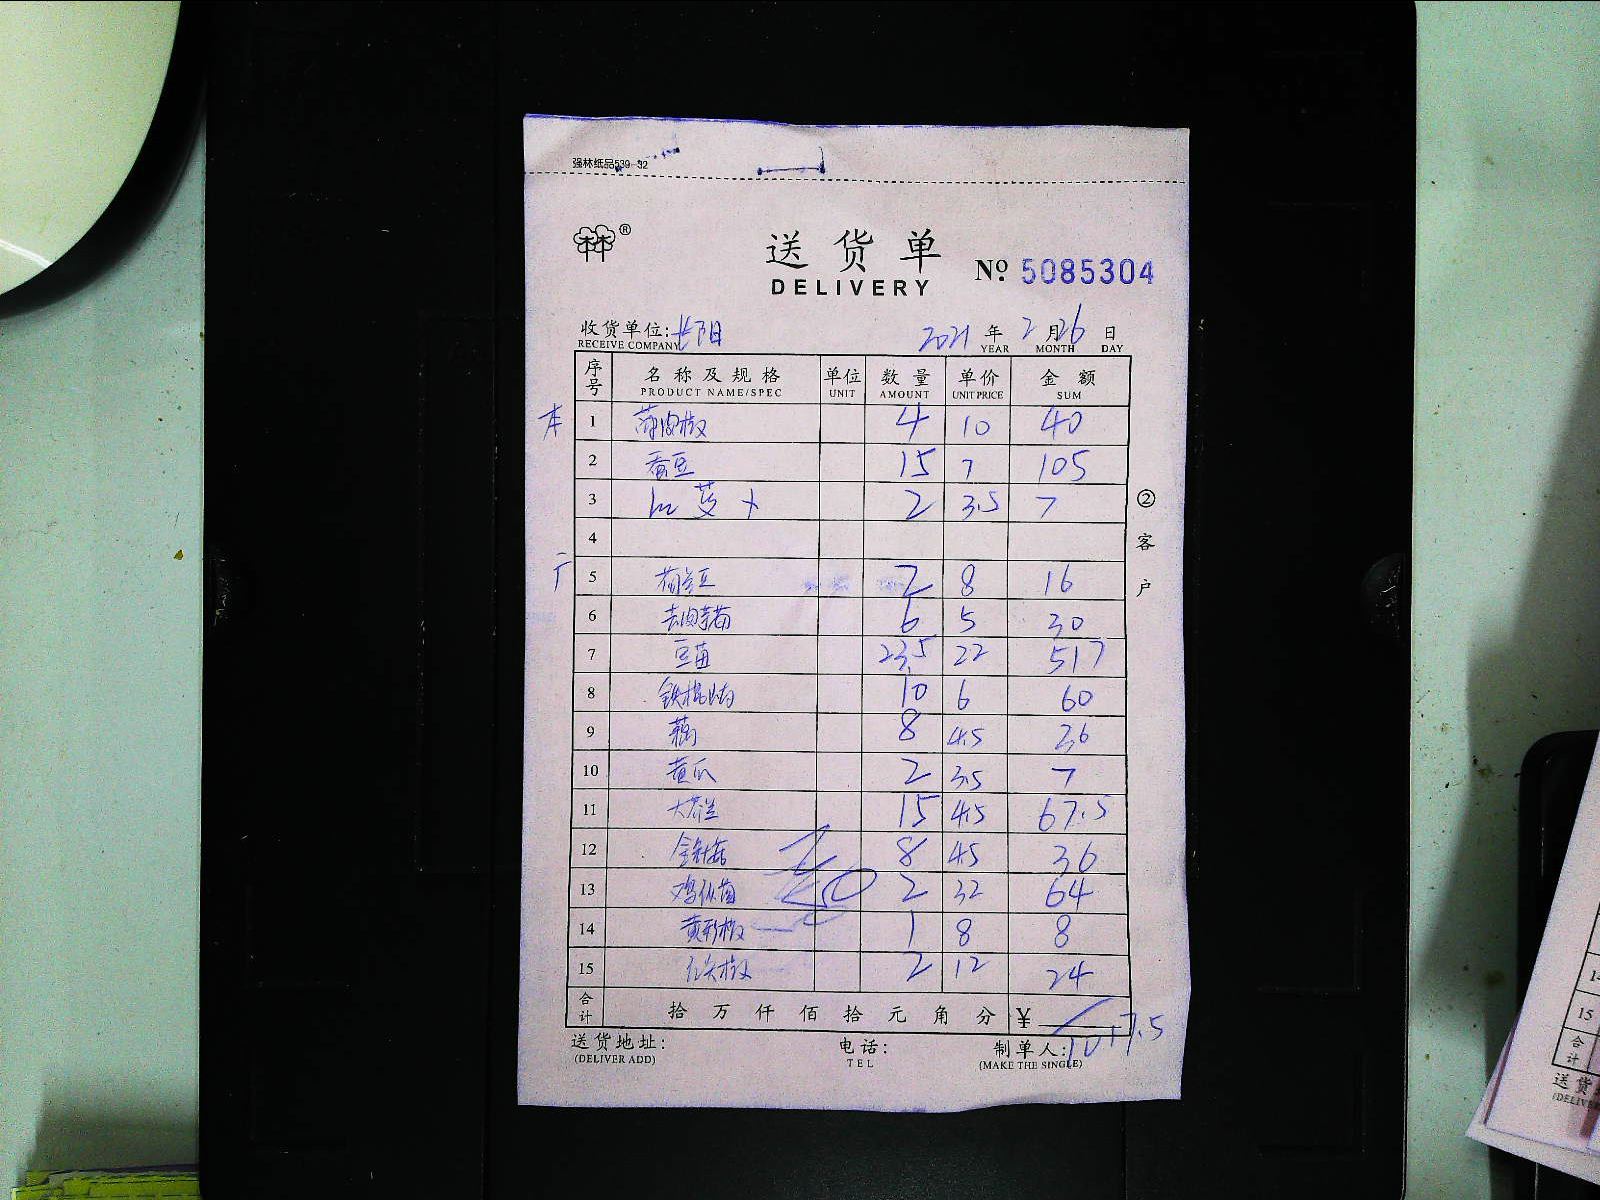 强林纸品539-32
送货单
DELIVERY
№ 5085304
收货单位: 长阳 2021 年 2 月 26 日
RECEIVE COMPANY YEAR MONTH DAY
序号 名称及规格 单位 数量 单价 金额
PRODUCT NAME/SPEC UNIT AMOUNT UNIT PRICE SUM
本 1 薄肉椒 4 10 40
2 蚕豆 15 7 105
3 2 3.5 7
4
5 荷兰豆 2 8 16
6 6 5 30
7 豆苗 23.5 22 517
8 10 6 60
9 藕 8 4.5 36
10 黄瓜 2 3.5 7
11 15 4.5 67.5
12 金针菇 8 4.5 36
13 2 32 64
14 黄彩椒 1 8 8
15 2 12 24
合计 拾 万 仟 佰 拾 元 角 分 ¥ 1017.5
送货地址: 电话: 制单人:
(DELIVER ADD) TEL (MAKE THE SINGLE)
② 客户
14
15
合计
送货
(DELIVE